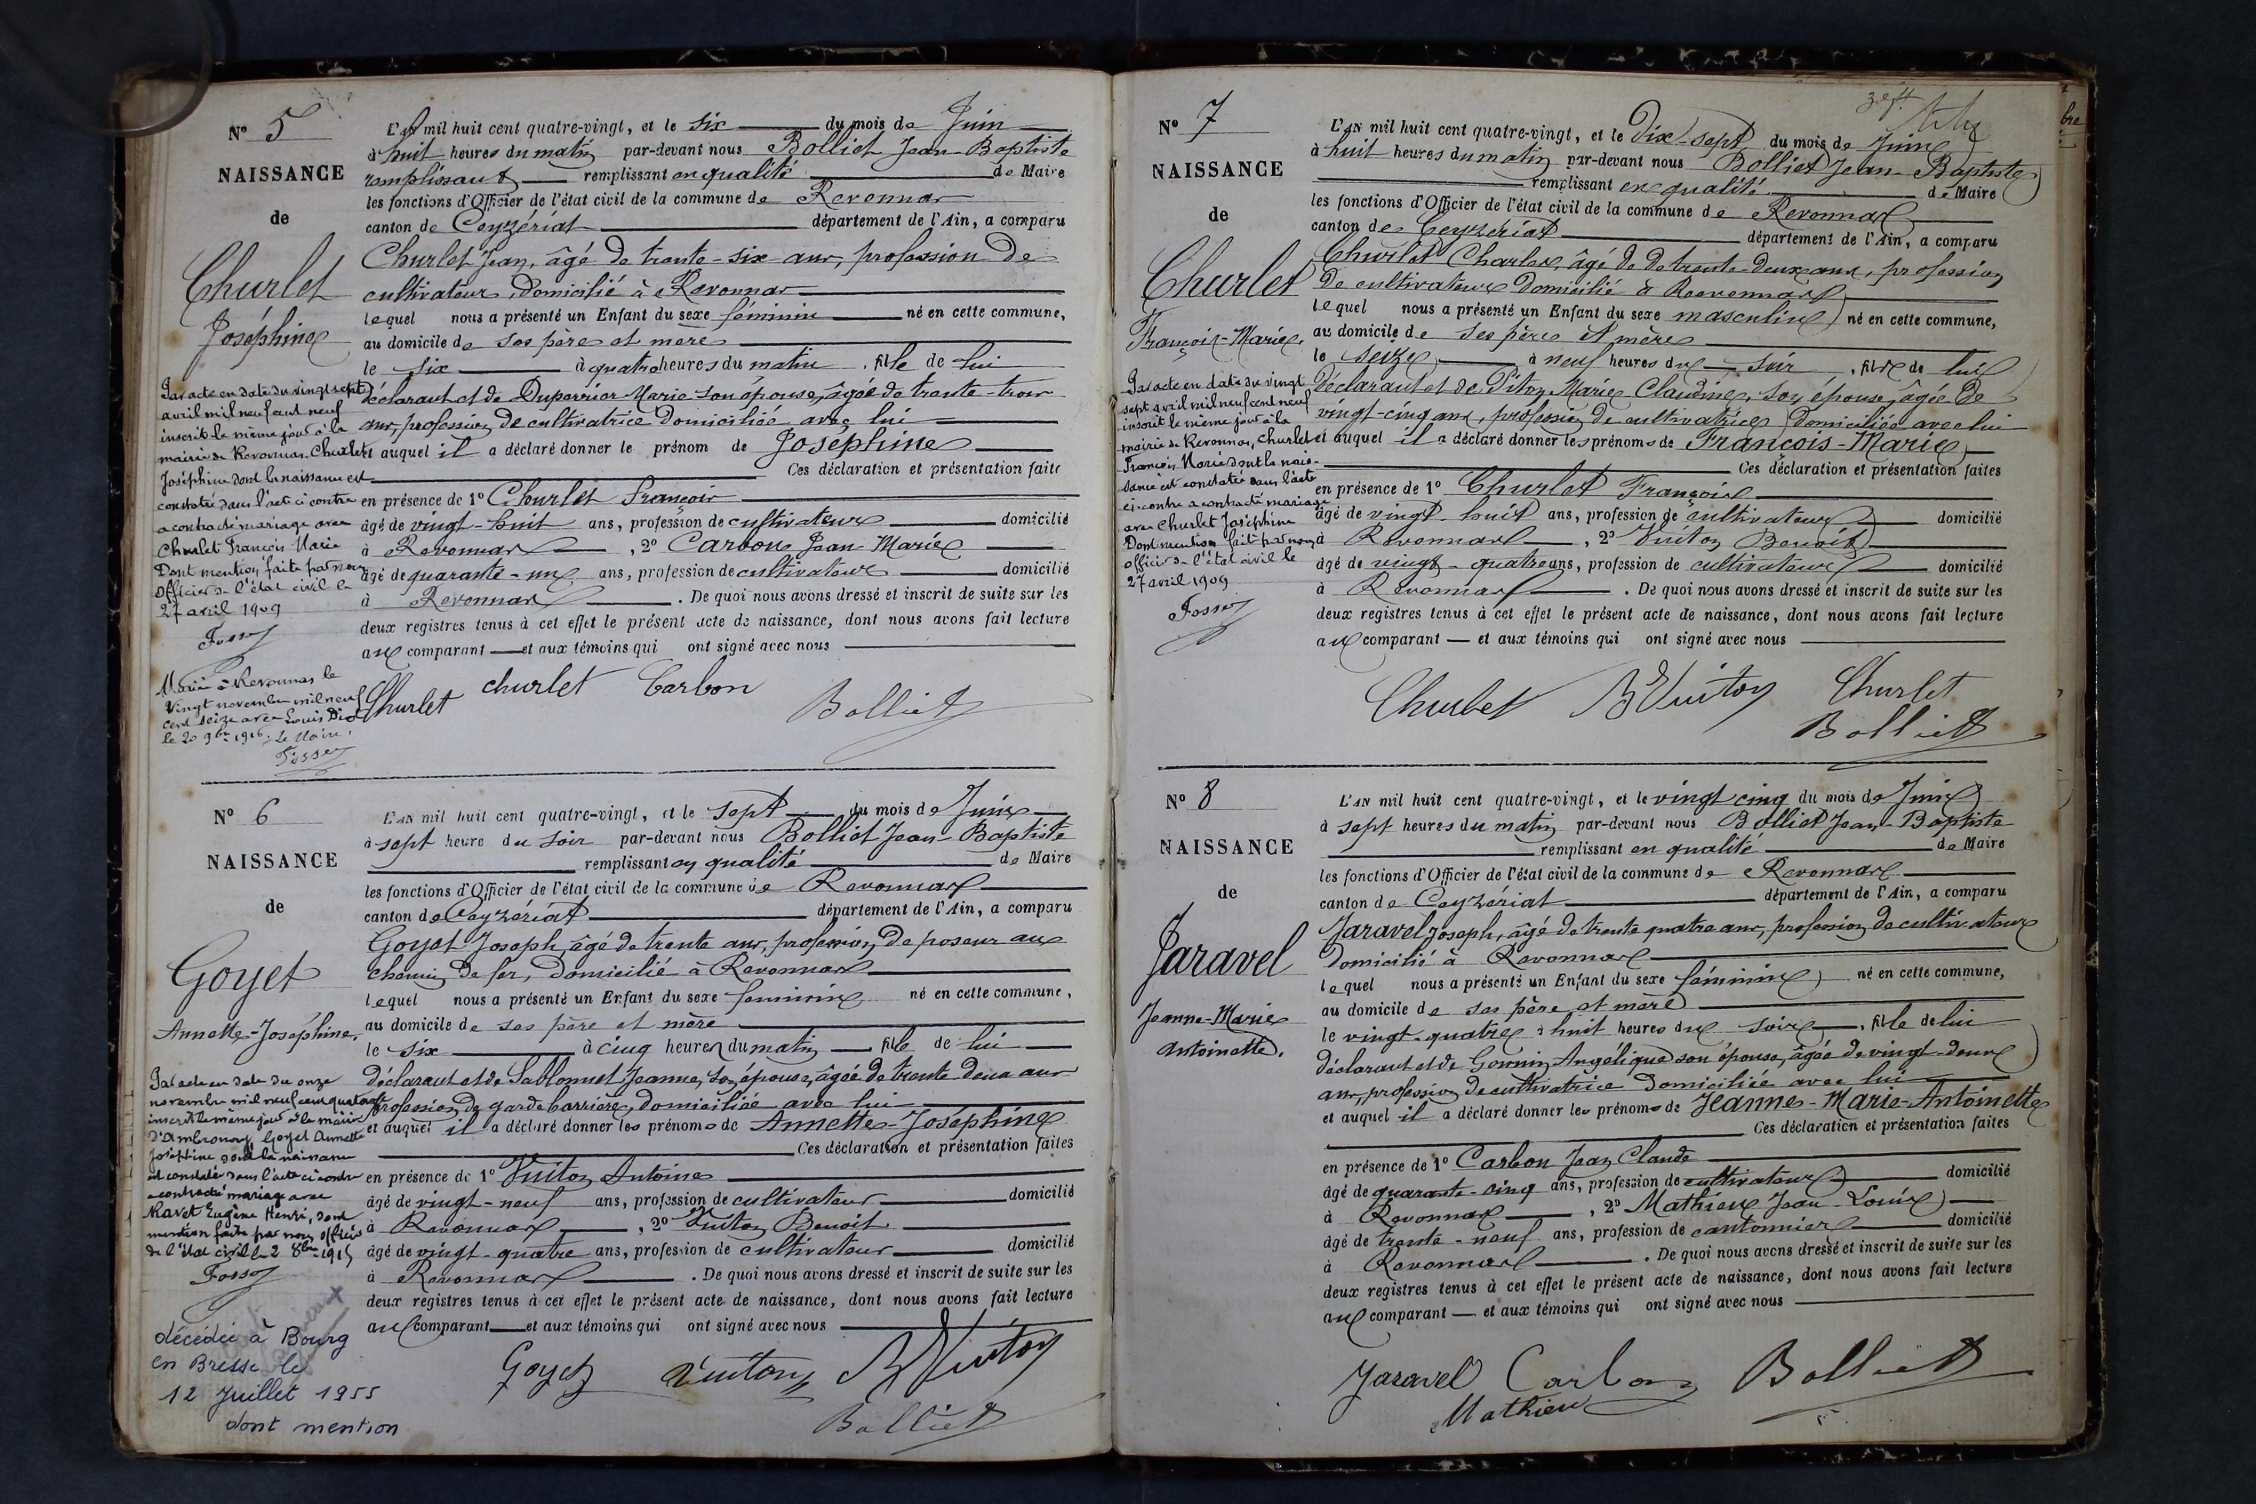 N° 5
NAISSANCE
de
Churlet
Joséphine
Par acte en date du vingt sept
avril mil neuf cent neuf
inscrit le même jour à la
mairie de Revonnas Churlet
Joséphine dont la naissance est
constatée dans l'acte ci contre
a contracté mariage avec
Churlet François Marie
Dont mention faite par nous
officier de l'état civil le
27 avril 1909
Marié à Revonnas le
vingt novembre mil neuf
cent seize avec Louis
le 20 9bre 1916. Le Maire,
L'AN mil huit cent quatre-vingt, et le six du mois de Juin
à huit heures du matin par-devant nous Bolliet Jean-Baptiste
remplissant remplissant en qualité de Maire
les fonctions d'Officier de l'état civil de la commune de Revonnas
canton de Ceyzériat département de l'Ain, a comparu
Churlet Jean, âgé de trente-six ans, profession de
cultivateur, domicilié à Revonnas
lequel nous a présenté un Enfant du sexe féminin né en cette commune,
au domicile de ses père et mère
le six à quatre heures du matin, fille de lui
déclarant et de Duperrier Marie son épouse, âgée de trente-trois
ans, profession de cultivatrice domiciliée avec lui
et auquel il a déclaré donner le prénom de Joséphine
Ces déclaration et présentation faites
en présence de 1° Churlet François
âgé de vingt-huit ans, profession de cultivateur domicilié
à Revonnas, 2° Carbon Jean-Marie
âgé de quarante-un ans, profession de cultivateur domicilié
à Revonnas. De quoi nous avons dressé et inscrit de suite sur les
deux registres tenus à cet effet le présent acte de naissance, dont nous avons fait lecture
au comparant et aux témoins qui ont signé avec nous
Churlet churlet Carbon Bolliet
N° 6
NAISSANCE
de
Goyet
Annette-Joséphine.
Par acte en date du onze
novembre mil neuf cent quatorze
inscrit le même jour à la mairie
d'Ambronay Goyet Annette
Joséphine dont la naissance
est constatée dans l'acte ci contre
a contracté mariage avec
Ravet Eugène Henri, dont
mention faite par nous officier
de l'état civil le 2 8bre 1915
décédée à Bourg
en Bresse le
12 Juillet 1955
dont mention
L'AN mil huit cent quatre-vingt, et le sept du mois de Juin
à sept heure du soir par-devant nous Bolliet Jean-Baptiste
remplissant en qualité de Maire
les fonctions d'Officier de l'état civil de la commune de Revonnas
canton de Ceyzériat département de l'Ain, a comparu
Goyet Joseph, âgé de trente ans, profession de poseur au
chemin de fer, domicilié à Revonnas
lequel nous a présenté un Enfant du sexe féminin né en cette commune,
au domicile de ses père et mère
le six à cinq heures du matin fille de lui
déclarant et de Sablonnet Jeanne, son épouse, âgée de trente deux ans
profession de garde barrière, domiciliée avec lui
et auquel il a déclaré donner les prénoms de Annette-Joséphine
Ces déclaration et présentation faites
en présence de 1° Vuiton Antoine
âgé de vingt-neuf ans, profession de cultivateur domicilié
à Revonnas, 2° Vuiton Benoit
âgé de vingt-quatre ans, profession de cultivateur domicilié
à Revonnas. De quoi nous avons dressé et inscrit de suite sur les
deux registres tenus à cet effet le présent acte de naissance, dont nous avons fait lecture
au comparant et aux témoins qui ont signé avec nous
Goyet Vuiton B Vuiton
Bolliet
N° 7
NAISSANCE
de
Churlet
François-Marie.
Par acte en date du vingt
sept avril mil neuf cent neuf
inscrit le même jour à la
mairie de Revonnas, Churlet
François Marie dont la nais-
sance est constatée dans l'acte
ci-contre a contracté mariage
avec Churlet Joséphine
Dont mention faite par nous
officier de l'état civil le
27 avril 1909
L'AN mil huit cent quatre-vingt, et le Dix-sept du mois de Juin
à huit heures du matin par-devant nous Bolliet Jean-Baptiste
remplissant en qualité de Maire
les fonctions d'Officier de l'état civil de la commune de Revonnas
canton de Ceyzériat département de l'Ain, a comparu
Churlet Charles, âgé de de trente-deux ans, profession
de cultivateur domicilié à Revonnas
lequel nous a présenté un Enfant du sexe masculin né en cette commune,
au domicile de ses père et mère
le seize à neuf heures du soir, fils de lui
déclarant et de Piton Marie Claudine, son épouse, âgée de
vingt-cinq ans, profession de cultivatrice domiciliée avec lui
et auquel il a déclaré donner les prénoms de François-Marie
Ces déclaration et présentation faites
en présence de 1° Churlet François
âgé de vingt-huit ans, profession de cultivateur domicilié
à Revonnas, 2° Vuiton Benoit
âgé de vingt-quatre ans, profession de cultivateur domicilié
à Revonnas. De quoi nous avons dressé et inscrit de suite sur les
deux registres tenus à cet effet le présent acte de naissance, dont nous avons fait lecture
au comparant et aux témoins qui ont signé avec nous
Churlet B Vuiton Churlet
Bolliet
N° 8
NAISSANCE
de
Jaravel
Jeanne-Marie
Antoinette.
L'AN mil huit cent quatre-vingt, et le vingt cinq du mois de Juin
à sept heures du matin par-devant nous Bolliet Jean-Baptiste
remplissant en qualité de Maire
les fonctions d'Officier de l'état civil de la commune de Revonnas
canton de Ceyzériat département de l'Ain, a comparu
Jaravel Joseph, âgé de trente quatre ans, profession de cultivateur
domicilié à Revonnas
lequel nous a présenté un Enfant du sexe féminin né en cette commune,
au domicile de ses père et mère
le vingt-quatre à huit heures du soir, fille de lui
déclarant et de Angélique son épouse, âgée de vingt-deux
ans, profession de cultivatrice domiciliée avec lui
et auquel il a déclaré donner les prénoms de Jeanne-Marie-Antoinette
Ces déclaration et présentation faites
en présence de 1° Carbon Jean Claude
âgé de quarante-cinq ans, profession de cultivateur domicilié
à Revonnas, 2° Mathieu Jean-Louis
âgé de trente-neuf ans, profession de cantonnier domicilié
à Revonnas. De quoi nous avons dressé et inscrit de suite sur les
deux registres tenus à cet effet le présent acte de naissance, dont nous avons fait lecture
au comparant et aux témoins qui ont signé avec nous
Jaravel Carbon Bolliet
Mathieu